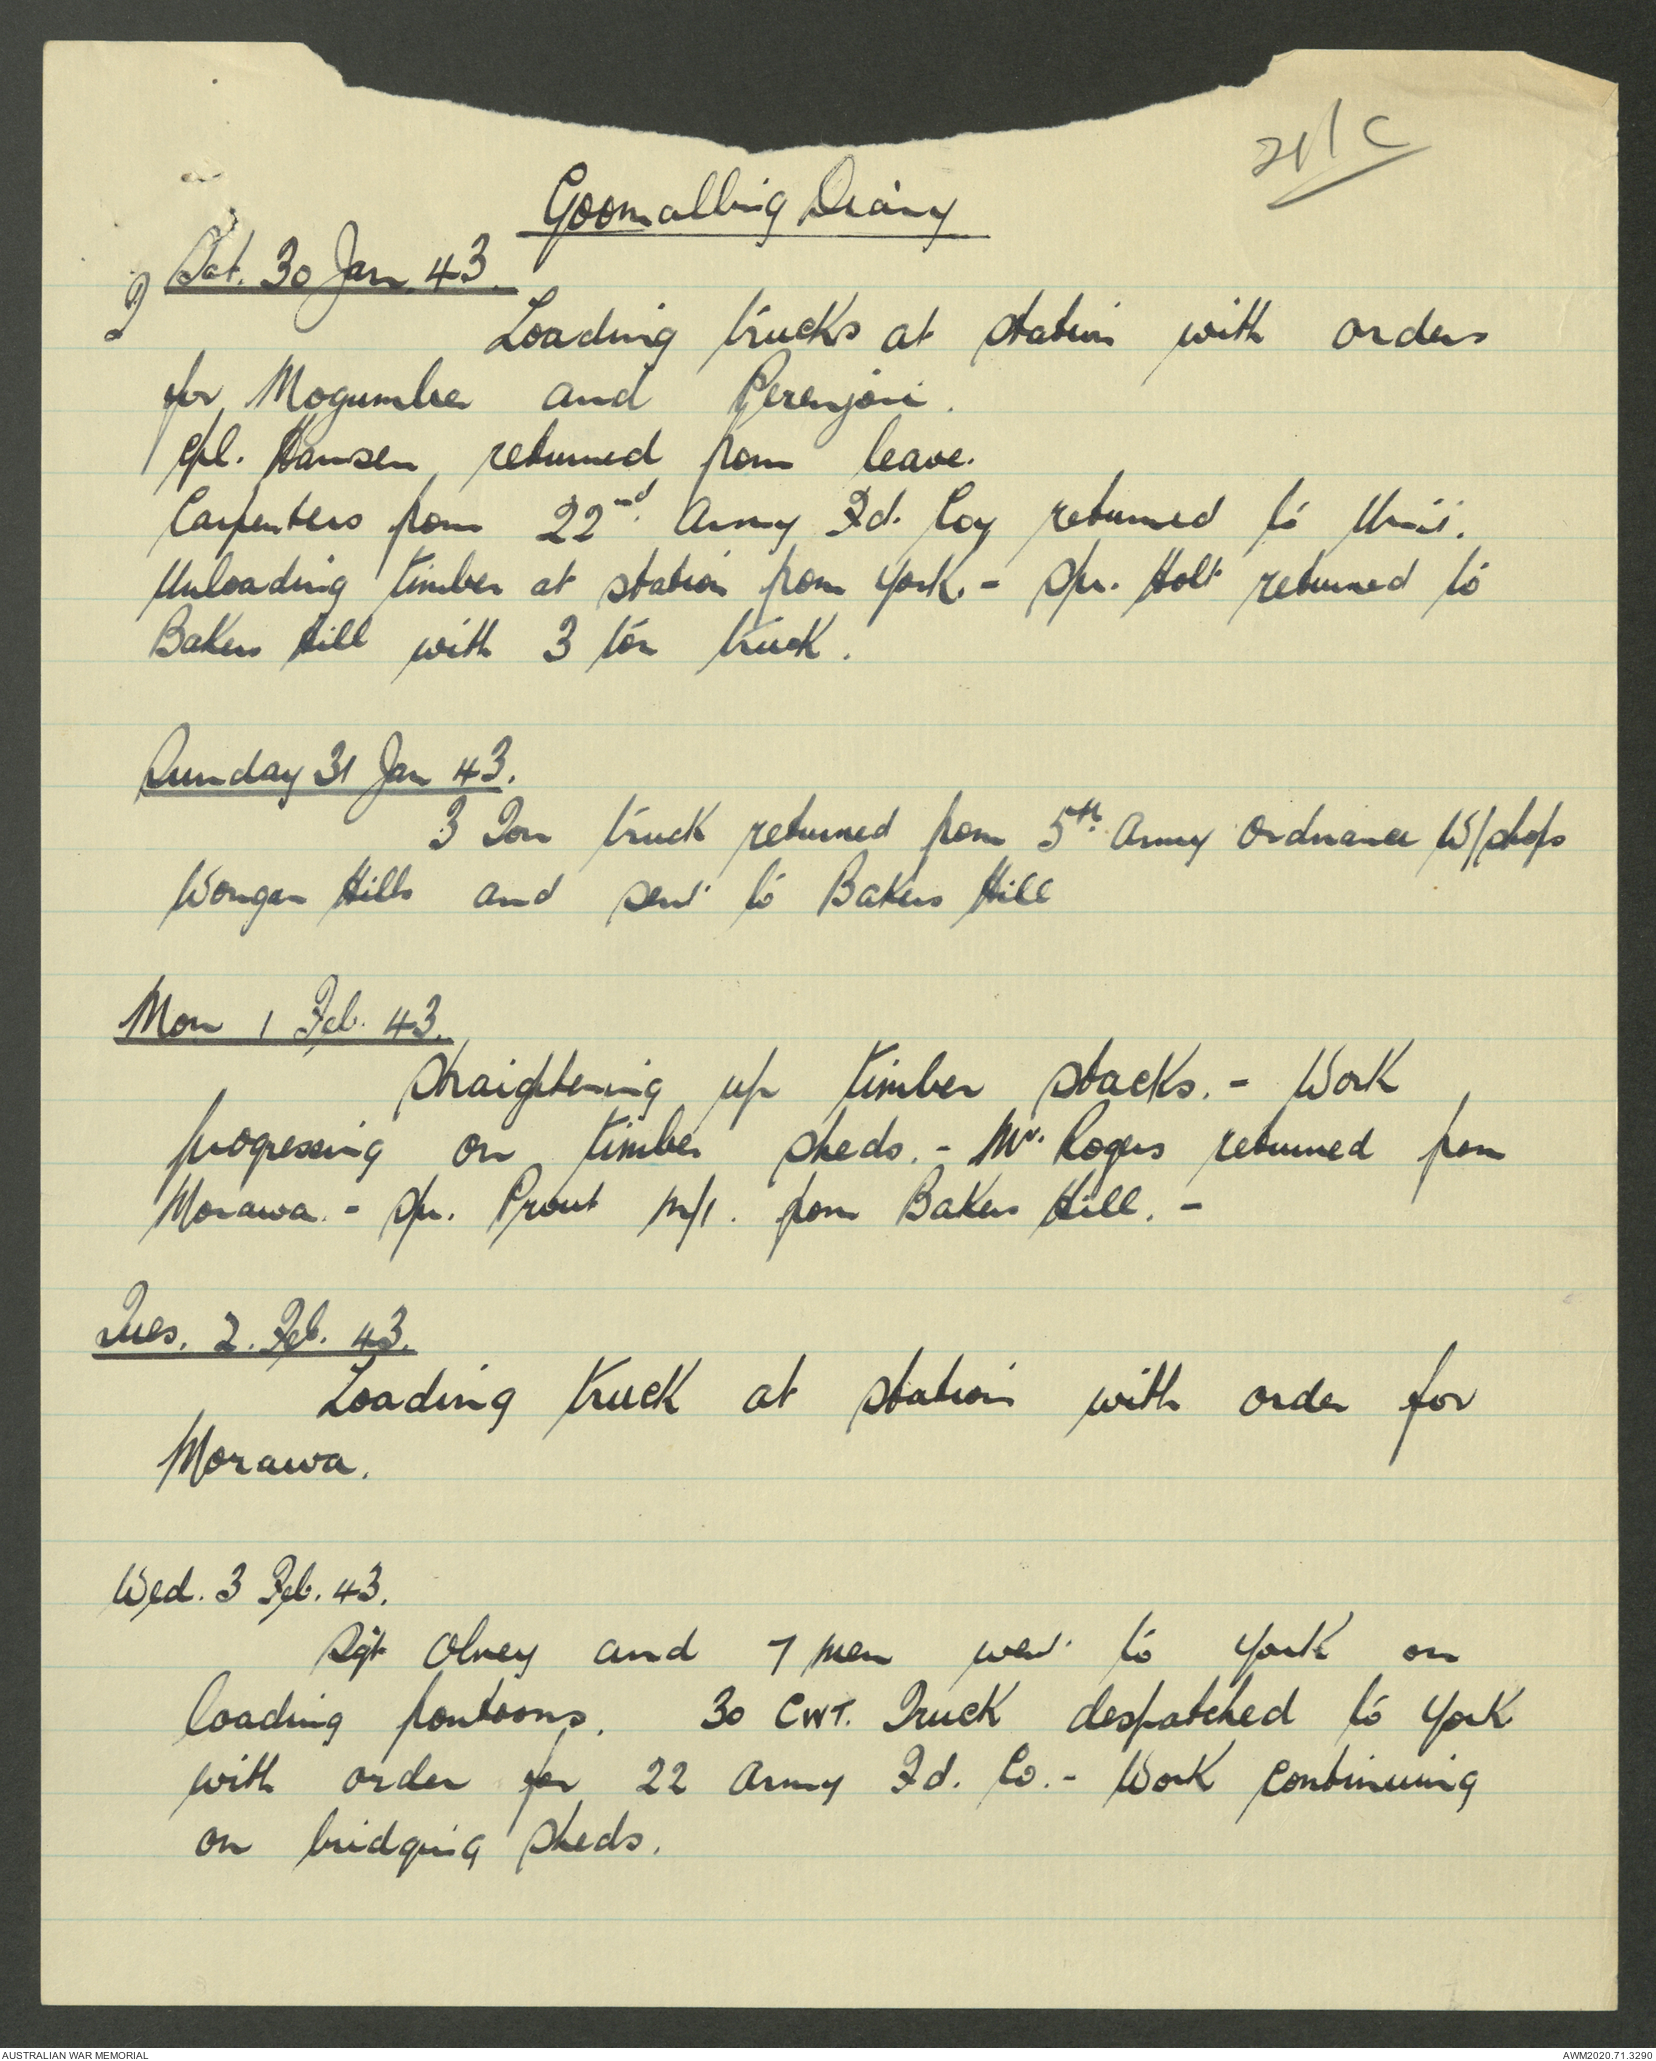 21/C
Goomalling Diary
Sat. 30 Jan. 43.
Loading trucks at station with orders
for Mogumber and Perenjori.
Cpl. Hansen returned from leave.
Carpenters from 22nd. Army Fd. Coy returned to Unit.
Unloading timber at station from York. - Spr. Holt returned to
Bakers Hill with 3 ton truck.
Sunday 31 Jan 43.
3 Ton truck returned from 5th. Army Ordnance W/shops
Wongan Hills and sent to Bakers Hill
Mon 1 Feb. 43.
Straightening up timber stacks. - Work
progressing on timber sheds. - Mr. Rogers returned from
Morawa. - Spr. Prout m/i. from Bakers Hill. -
Tues. 2. Feb. 43.
Loading truck at station with order for
Morawa.
Wed. 3 Feb. 43.
Sgt Olney and 7 men went to York on
loading pontoons. 30 CWT. Truck despatched to York
with order for 22 Army Fd. Co. - Work continuing
on bridging sheds.
AUSTRALIAN WAR MEMORIAL
AWM2020.71.3290